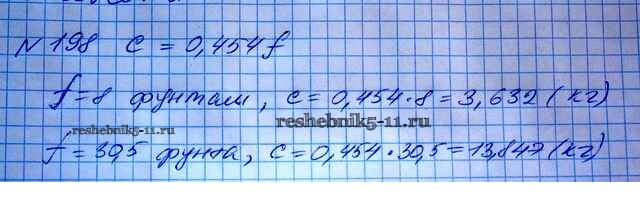 № 198 c = 0,454f
f = 8 фунтам, c = 0,454·8 = 3,632 (кг)
reshebnik5-11.ru
reshebnik5-11.ru
f = 30,5 фунта, c = 0,454·30,5 = 13,847 (кг)